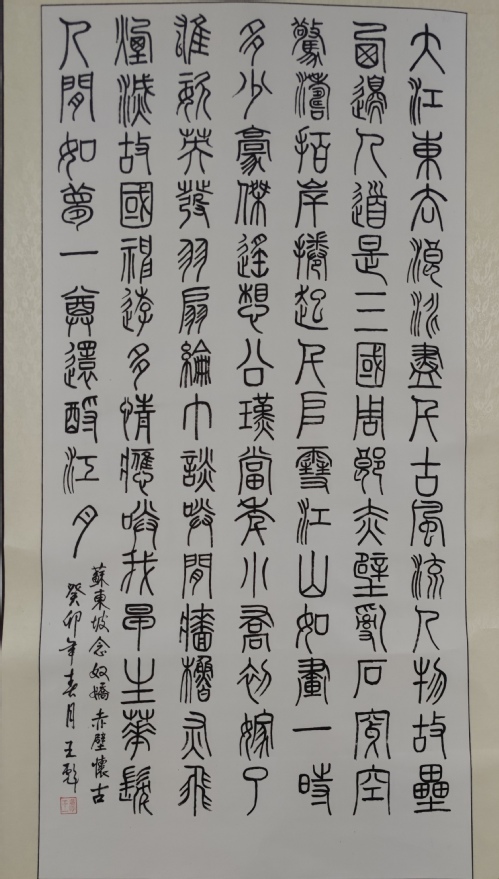 大江東去浪淘盡千古風流人物故壘
西邊人道是三國周郎赤壁亂石穿空
驚濤拍岸捲起千堆雪江山如畫一時
多少豪傑遙想公瑾當年小喬初嫁了
雄姿英發羽扇綸巾談笑間牆櫓灰飛
煙滅故國神遊多情應笑我早生華髮
人間如夢一尊還酹江月
蘇東坡念奴嬌赤壁懷古
癸卯年春月王